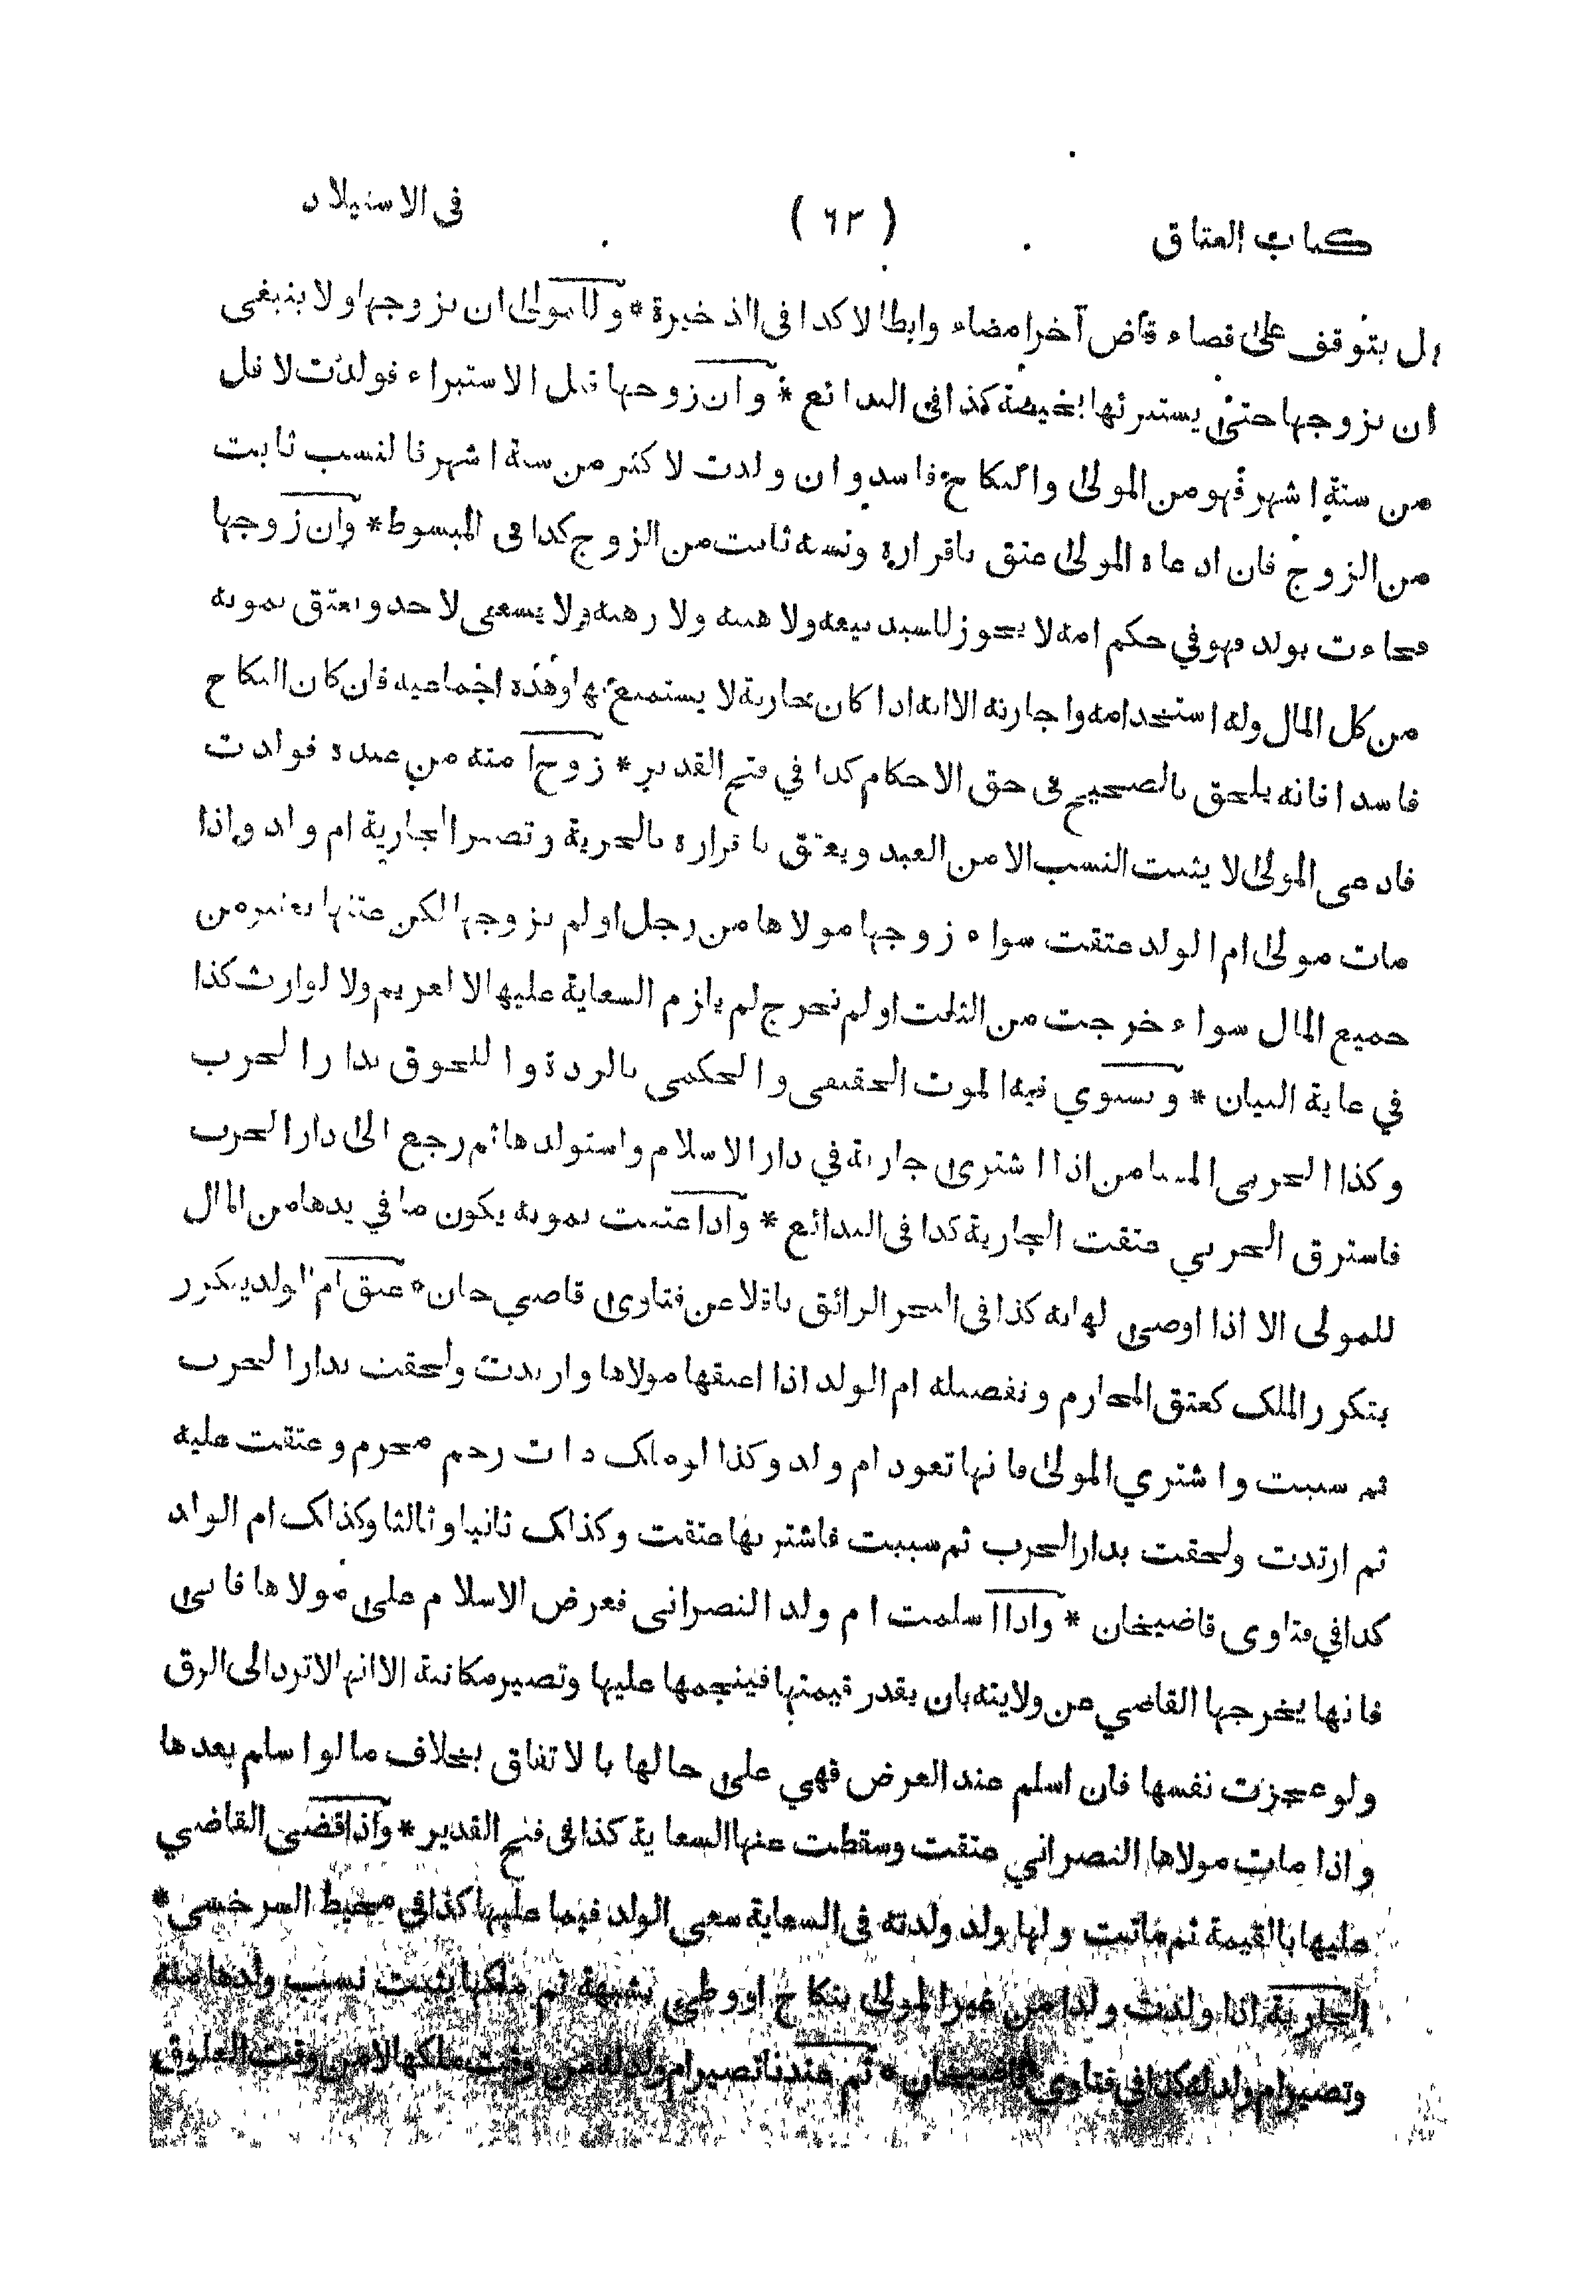 كتاب العتاق
( ٦٣ )
في الاستيلاد
بل يتوقف على قضاء قاض آخر امضاء وابطالا كذا في الذخيرة * وللمولى ان يزوجها ولا ينبغي
ان يزوجها حتى يستبرئها بحيضة كذا في البدائع * وان زوجها قبل الاستبراء فولدت لاقل
من ستة اشهر فهو من المولى والنكاح فاسد وان ولدت لاكثر من ستة اشهر فالنسب ثابت
من الزوج فان ادعاه المولى عتق باقراره ونسبه ثابت من الزوج كذا في المبسوط * وان زوجها
فجاءت بولد فهو في حكم امه لا يجوز للسيد بيعه ولا هبته ولا رهنه ولا يسعى لاحد ويعتق بموته
من كل المال وله استخدامه واجارته الا انه اذا كان جارية لا يستمتع بها وهذه اجماعية فان كان النكاح
فاسدا فانه يلحق بالصحيح في حق الاحكام كذا في فتح القدير * زوج امته من عبده فولدت
فادعى المولى لا يثبت النسب الا من العبد ويعتق باقراره بالحرية وتصير الجارية ام ولد واذا
مات مولى ام الولد عتقت سواء زوجها مولاها من رجل اولم يزوجها لكن عتقها يعتبر من
جميع المال سواء خرجت من الثلث اولم تخرج لم يلزم السعاية عليها لا لغريم ولا لوارث كذا
في غاية البيان * ويستوي فيه الموت الحقيقي والحكمي بالردة واللحوق بدار الحرب
وكذا الحربي المستامن اذا اشترى جارية في دار الاسلام واستولدها ثم رجع الى دار الحرب
فاسترق الحربي عتقت الجارية كذا في البدائع * واذا عتقت بموته يكون ما في يدها من المال
للمولى الا اذا اوصى لها به كذا في البحر الرائق ناقلا عن فتاوى قاضي خان * عتق ام الولد يتكرر
بتكرر الملك كعتق المحارم وتفصيله ام الولد اذا اعتقها مولاها وارتدت ولحقت بدار الحرب
ثم سبيت واشتري المولى فانها تعود ام ولد وكذا لوملك ذات رحم محرم وعتقت عليه
ثم ارتدت ولحقت بدار الحرب ثم سبيت فاشتريها عتقت وكذلك ثانيا وثالثا وكذلك ام الولد
كذا في فتاوى قاضيخان * واذا اسلمت ام ولد النصراني فعرض الاسلام على مولاها فابى
فانها يخرجها القاضي عن ولايته بان يقدر قيمتها فينجمها عليها وتصير مكاتبة الا انها لا ترد الى الرق
ولو عجزت نفسها فان اسلم عند العرض فهي على حالها بالاتفاق بخلاف مالو اسلم بعدها
واذا مات مولاها النصراني عتقت وسقطت عنها السعاية كذا في فتح القدير * واذا قضى القاضي
عليها بالقيمة ثم ماتت ولها ولد ولدته في السعاية سعى الولد فيما عليها كذا في محيط السرخسي *
الجارية اذا ولدت ولدا من غير المولى بنكاح او وطئ بشبهة ثم ملكها يثبت نسب ولدها منه
وتصير ام ولد له كذا في فتاوى قاضيخان * ثم عندنا تصير ام ولد له من وقت ملكها لا من وقت العلوق